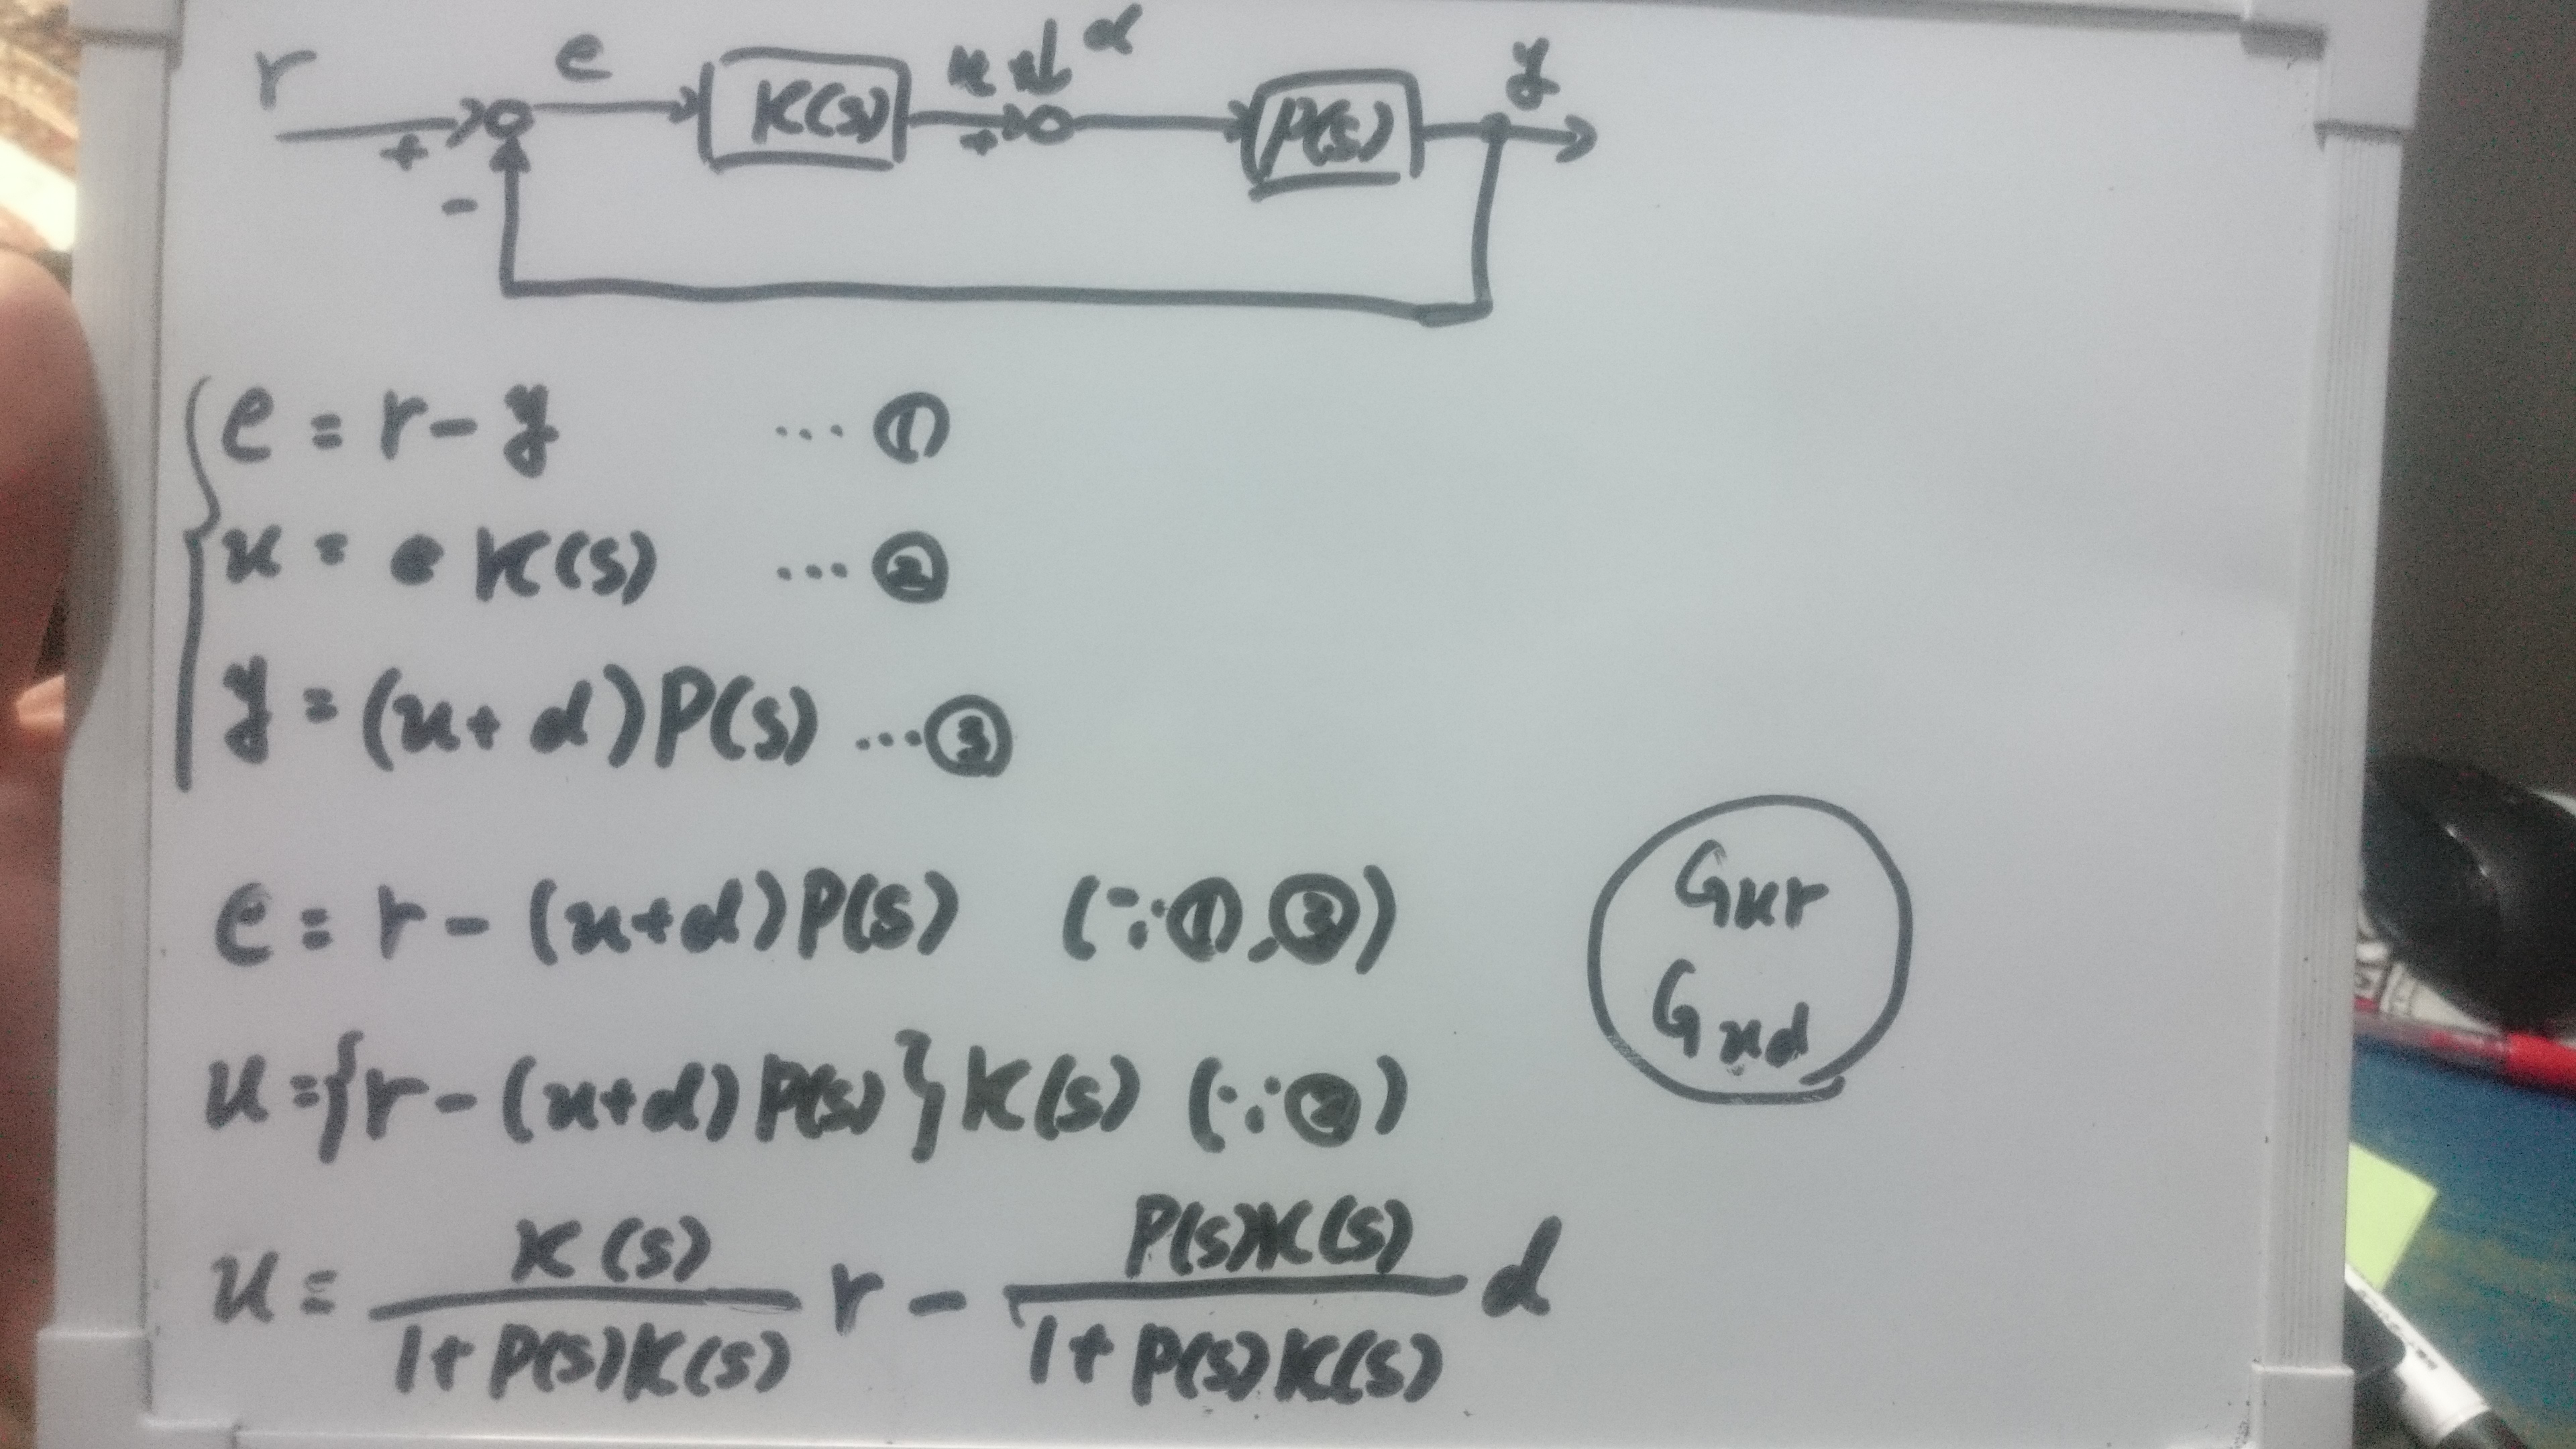 r e K(s) u d P(s) y
+ - +
e = r - y ... ①
u = e K(s) ... ②
y = (u + d) P(s) ... ③
e = r - (u+d) P(s) (∵ ①, ③)
u = {r - (u+d) P(s)} K(s) (∵ ②)
u = K(s) / 1 + P(s)K(s) r - P(s)K(s) / 1 + P(s)K(s) d
Gur
Gud